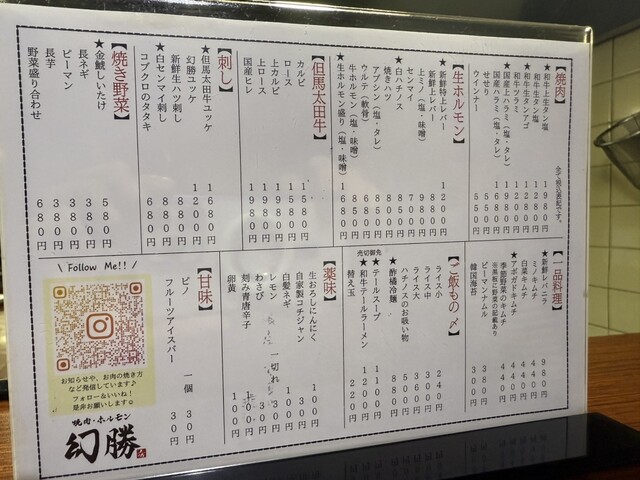 【焼肉】
全て税込表記です。
★和牛上生タン塩 1980円
和牛生タン塩 1280円
和牛生タンアゴ 1280円
和牛ツラミ 980円
★国産上ハラミ(塩・タレ) 1680円
国産ハラミ(塩・タレ)
せせり 550円
ウインナー 550円
【生ホルモン】
★新鮮特上レバー 1200円
新鮮上レバー 980円
上ミノ(塩・味噌) 880円
センマイ 700円
★白ハチノス 850円
焼きハツ 780円
アブシン(塩・タレ)
ウルテ(軟骨) 680円
牛ホルモン(塩・味噌) 850円
★生ホルモン盛り(塩・味噌) 1680円
【但馬太田牛】
カルビ 1580円
ロース 1580円
上カルビ 1980円
上ロース 1980円
国産ヒレ 1980円
【刺し】
★但馬太田牛ユッケ 1680円
幻勝ユッケ 1200円
新鮮生ハツ刺し 880円
★白センマイ刺し 880円
コブクロのタタキ 680円
【焼き野菜】
★金鯱しいたけ 580円
長ネギ 380円
ピーマン 380円
長芋 380円
野菜盛り合わせ 680円
【一品料理】
新鮮レバニラ 980円
ミノキムチ
白菜キムチ 440円
★アボガドキムチ 440円
季節野菜のキムチ 440円
※黒板に野菜の記載あり
ピーマンナムル 380円
韓国海苔 300円
【ご飯もの〆】
ライス小 240円
ライス中 300円
ライス大 360円
ハチノスのお吸い物 550円
酢橘冷麺 880円
★テールスープ 1100円
★和牛テールラーメン 1200円
売切御免
替え玉 220円
【薬味】
生おろしにんにく 100円
自家製コチジャン
白髪ネギ 100円
レモン 一切れ 30円
わさび
刻み青唐辛子
卵黄 100円
【甘味】
ピノ 一個 30円
フルーツアイスバー 30円
\ Follow Me!! /
お知らせや、お肉の焼き方
など発信しています♪
フォロー&いいね!
是非お願いします☺
焼肉・ホルモン
幻勝